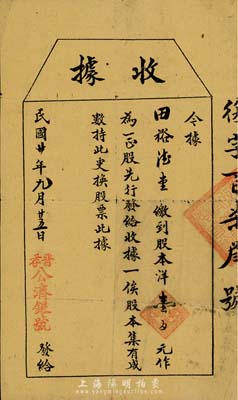 收據
字百 號
今據
田裕 堂 繳到股本洋壹百元作
為一正股先行發給收據一俟股本集有成
數持此更換股票此據
民國廿年九月廿五日
公濟銀號 發給
上海陽明拍賣